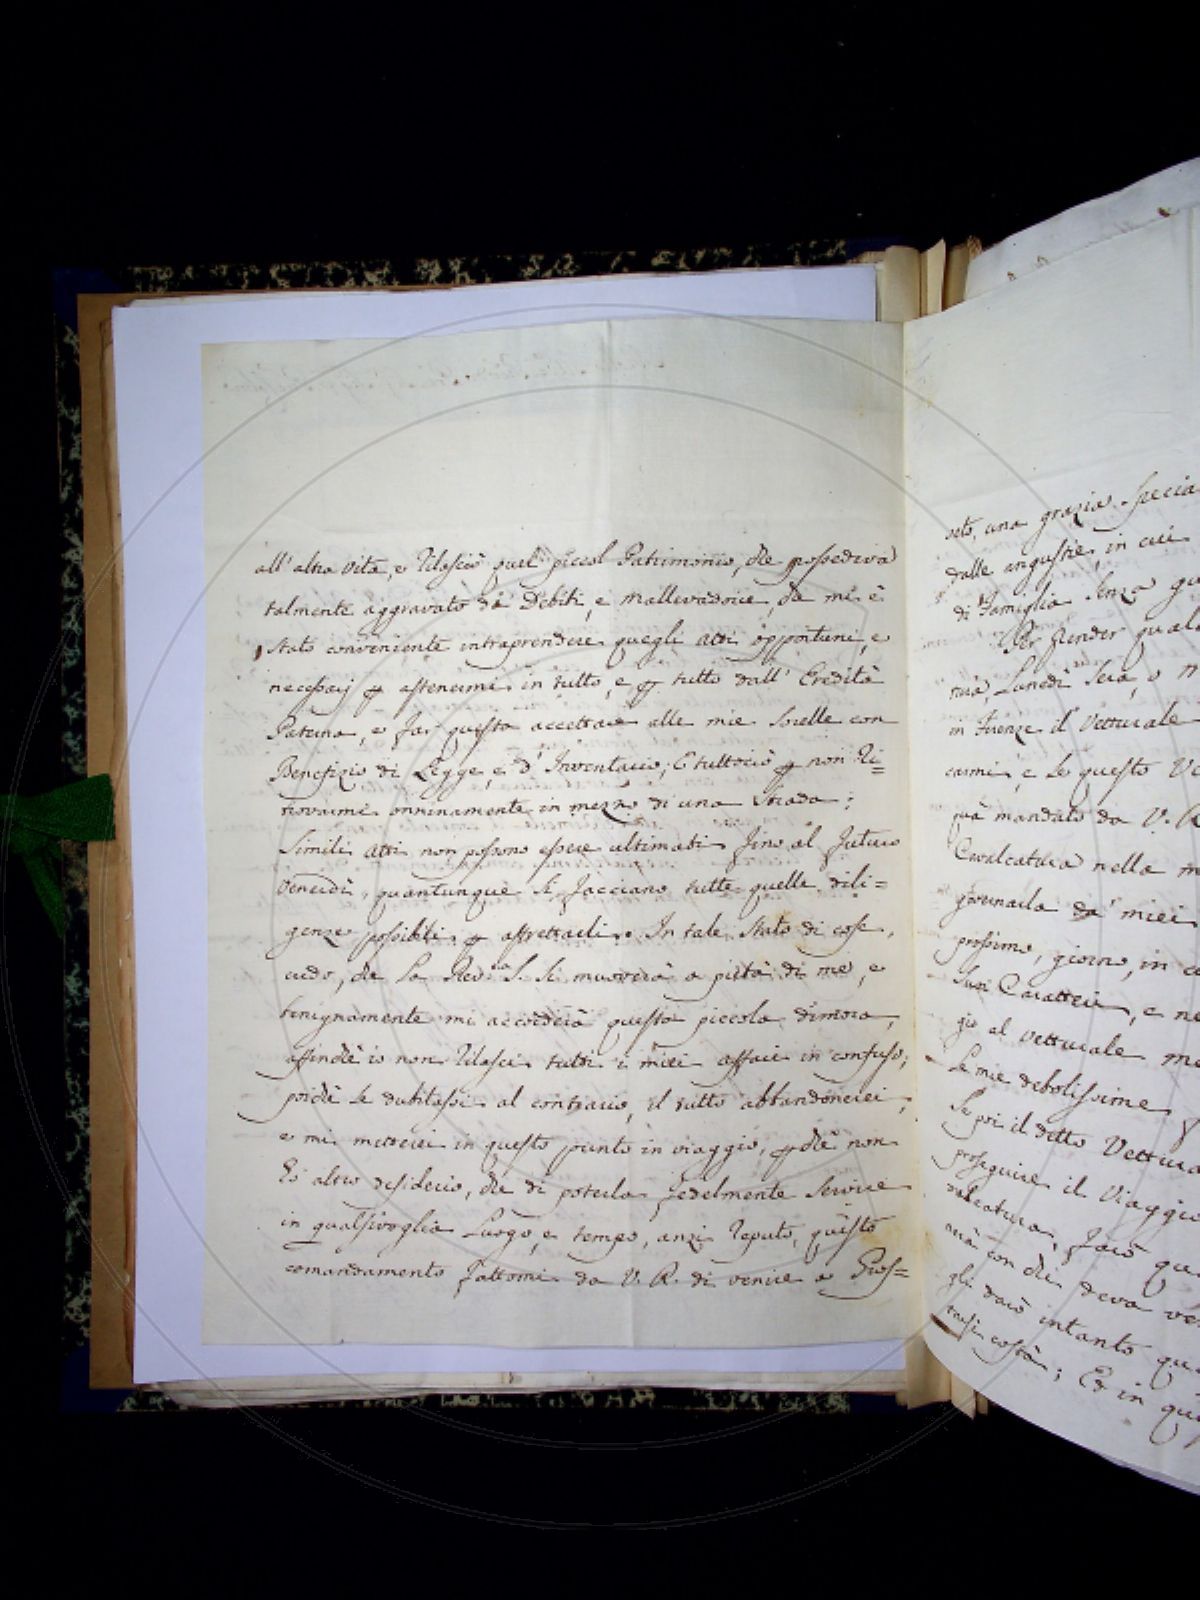 all'altra vita, e rilasciò quel piccol Patrimonio, che possedeva
talmente aggravato da Debiti, e mallevadorie, che mi è
stato conveniente intraprendere quegli atti opportuni, e
necessarj p astenermi in tutto, e p tutto dall' Eredità
Paterna, e far questa accettare alle mie Sorelle con
Benefizio di Legge, e d' Inventario; E tuttociò p non ri=
trovarmi onninamente in mezzo di una Strada;
Simili atti non possono essere ultimati fino al futuro
Venerdì, quantunque si facciano tutte quelle dili=
genze possibili p affrettarli. In tale stato di cose,
credo, che la Rev.ma S. si muoverà a pietà di me, e
benignamente mi accorderà questa piccola dimora,
affinchè io non rilasci tutti i miei affari in confuso;
poichè se dubitassi al contrario, il tutto abbandonerei,
e mi metterei in questo punto in viaggio, p chè non
hò altro desiderio, che di poterla fedelmente servire
in qualsivoglia Luogo, e tempo, anzi reputo, questo
comandamento fattomi da V. R. di venire a Gros=
una grazia specia
dalle angustie, in cui
di Famiglia senza
Per render
Lunedì sera, o
in Firenze il Vetturale
carmi, e se questo
quà mandato da V. R
Cavalcatura nella
da' miei
prossimo, giorno, in
suoi Caratteri, e
gio al vetturale
le mie debolissime
Se poi il detto Vettura
proseguire il Viaggio
valcatura, farò
con chi deva
gli darò intanto
costà; Ed in